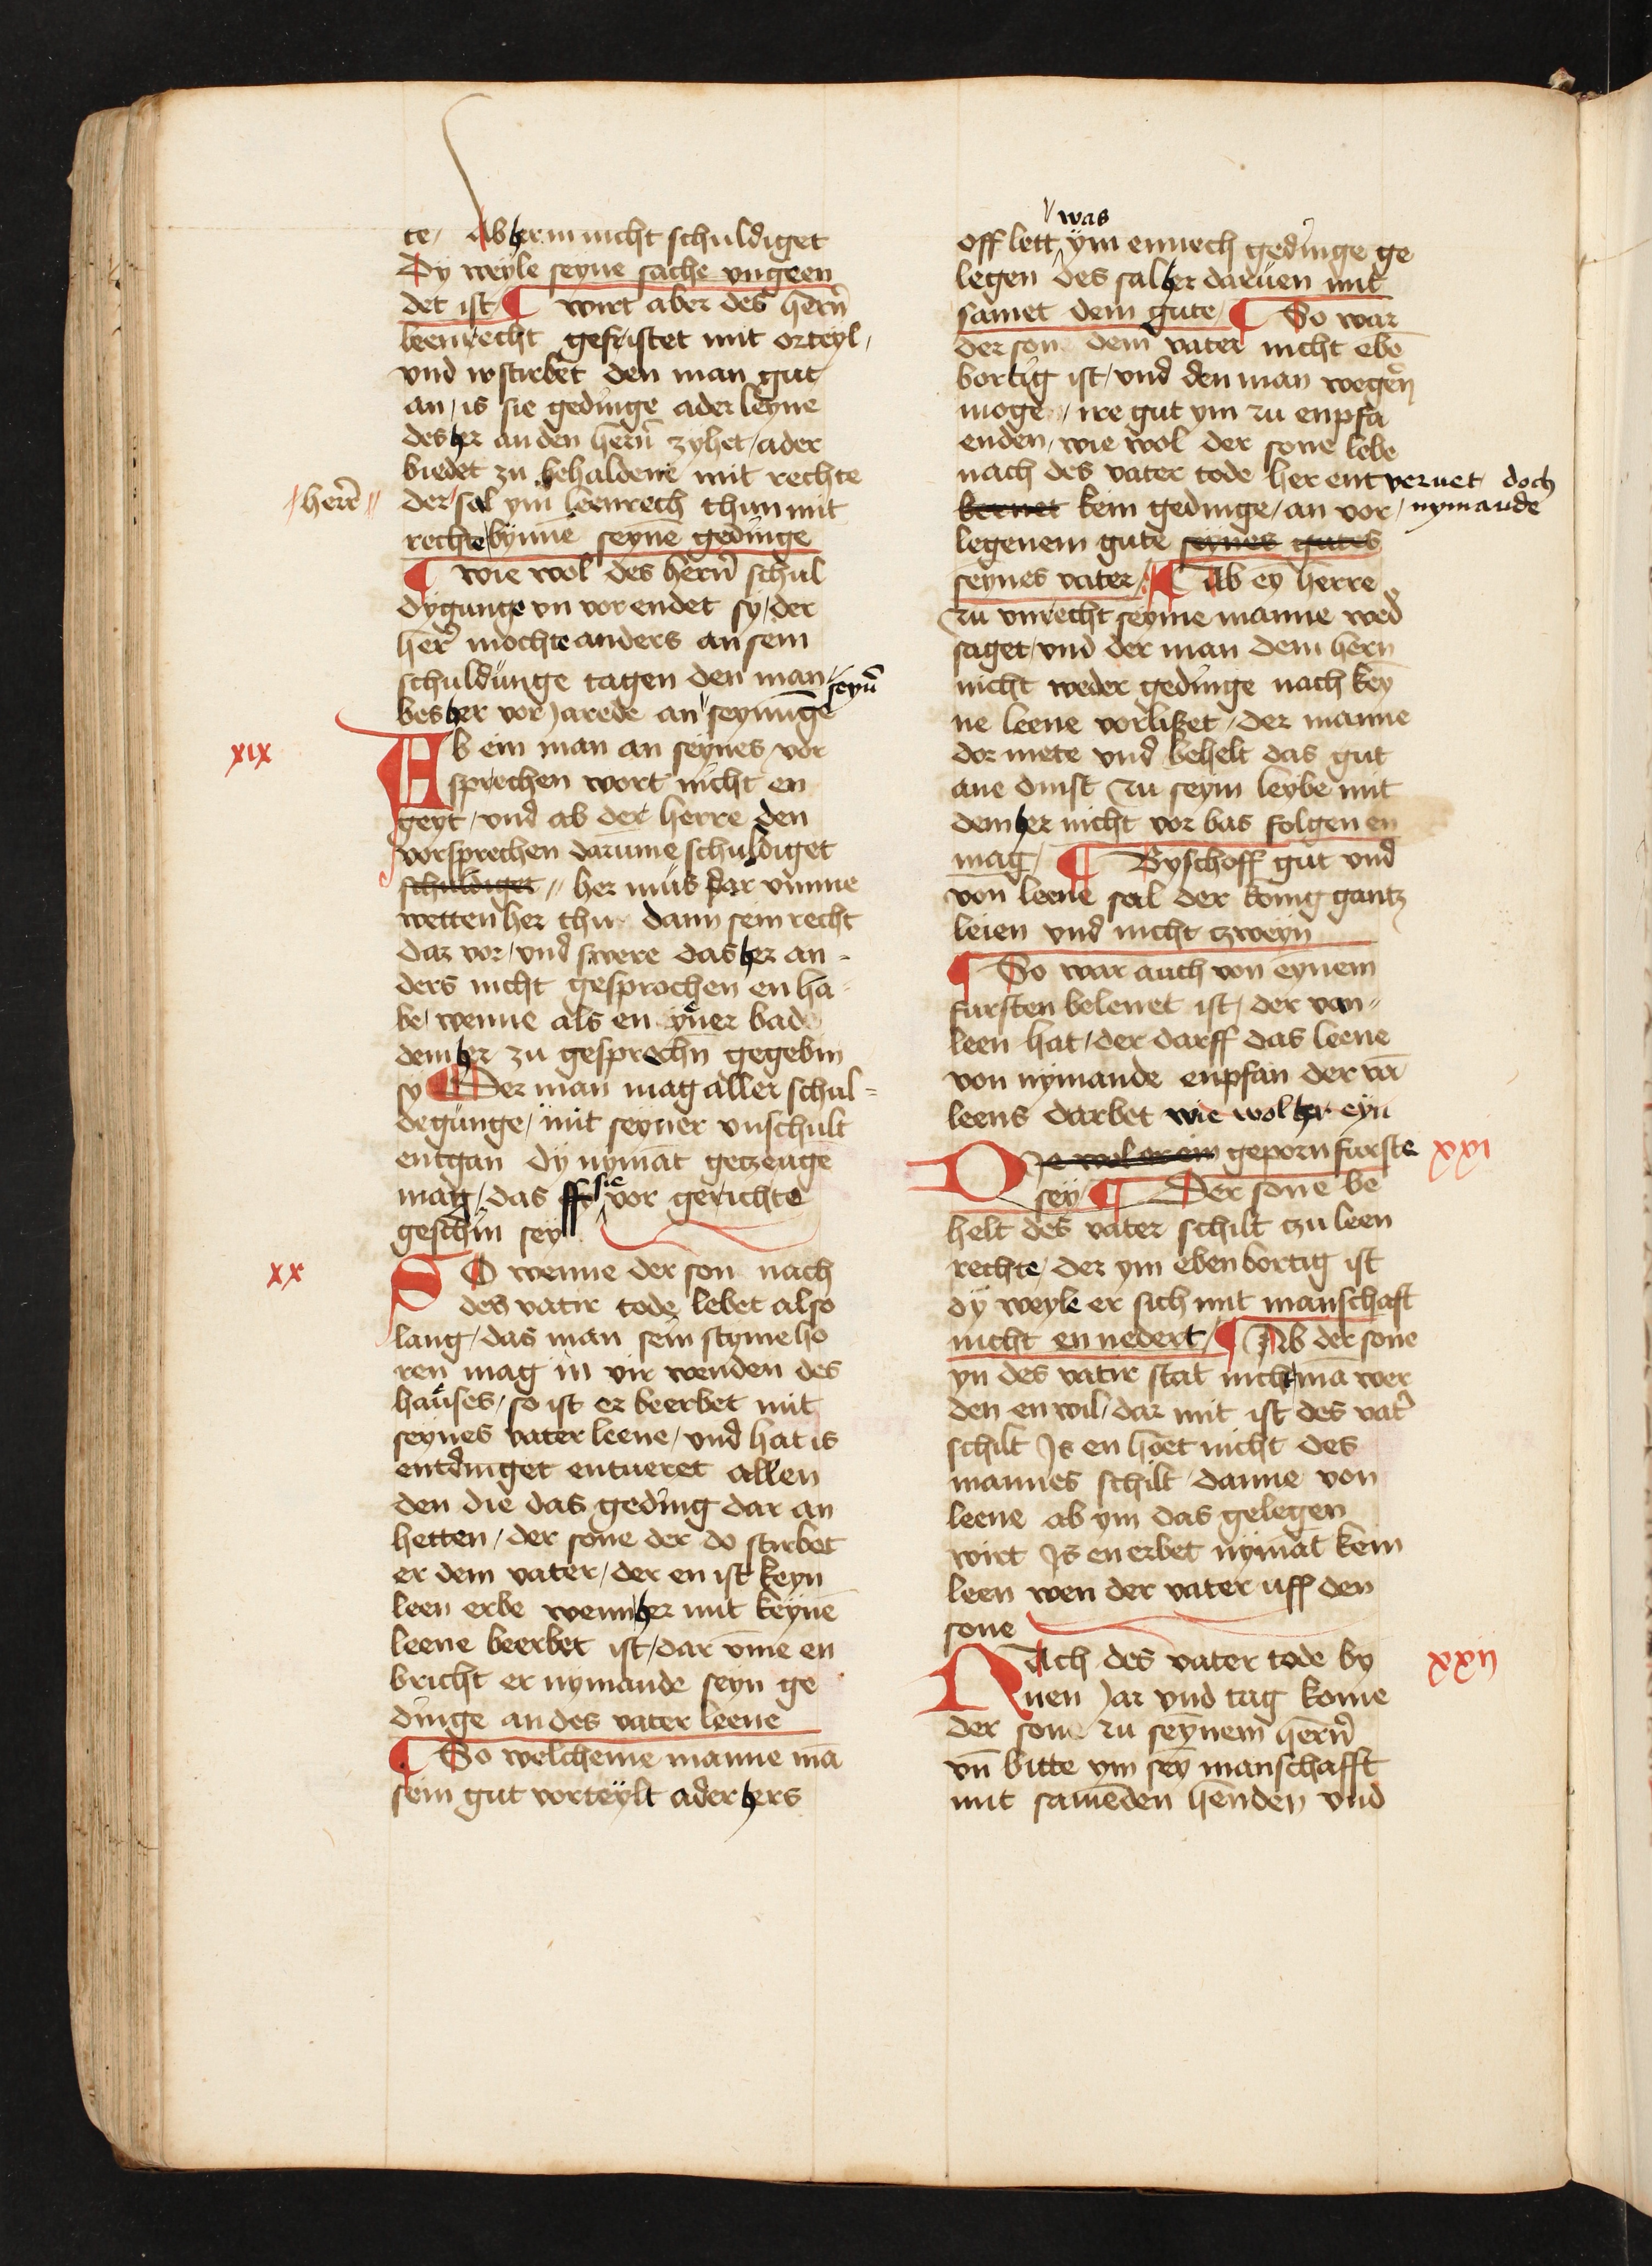 te / Ab her in nicht schuldiget
Dy weyle seyne sache vngeen
det ist ¶ wirt aber des hern̄
leenrecht gefristet mit orteyl /
vnd irstirbet den man gut
an / is sie gedinge ader leyne
des her an den hern̄ zyhet / ader
biedet zu behaldene mit rechte
/ herr̄ //
der / sal ym leenrech thun mit
rechte bynnē seynē gedinge
¶ wie wol des hern̄ schul
dygunge vn vor endet sy / der
her̄ mochte anders an sein
schuldunge tagen den man /
seyn̄
des her vor Jarede an seynnige
xix
Ab ein man an seynes / vor
sprechen wort nicht en
geyt / vnd ab der herre den
vorsprechen darume schuldiget
schuldiget // her mus dar vmme
wetten her thu dann sein recht
dar vor / vnd swere das her an =
ders nicht gesprochen en ha =
be / wenne als en yener bad
dem her zu gesprechn̄ gegebin
sy ¶ Der man mag aller schul =
degunge / mit seyner vnschult
entgan dy nymāt getzeuge
mag / das sie vor gerichte
geschin sey
xx
SO wenne der son nach
des vatir tode lebet also
lang / das man sein stymme ho
ren mag in vir wenden des
hauses / so ist er beerbet mit
seynes vater leene / vnd hat is
entdinget entueret allen
den die das geding dar an
hetten / der sone der do stirbet
er dem vater / der en ist keyn
leen erbe wenn her mit keyne
leene beerbet ist / dar vm̄e en
bricht er nymande seyn ge
dinge an des vater leene
¶ So welcheme manne mā
sein gut vorteylt ader hers
was
off lett ym ennech gedinge ge
legen des sal her daruen mit
samet dem gute / ¶ So war
der son dem vater nicht ebē
bortig ist / vnd den man wegen
moge / ire gut ym zu enpfa
enden / wie wol der sone lebe
nach des vater tode her ent vernet doch
kernet kein gedinge / an vor / nymande
legenem gute seynes gutes
seynes vater / ¶ Ab ey herre
zu vnrecht seyme manne wed̄
saget / vnd der man dem hern
nicht weder gedinge nach key
ne leene vorliset / der manne
dor mete vnd behelt das gut
ane dinst zu seym leybe mit
dem her nicht vor bas folgen en
mag / ¶ Byschoff gut vnd
von leene sal der konig gantz
leien vnd nicht czweyn
¶ So war auch von eynem
fursten belenet ist / der van =
leen hat / der darff das leene
von nymande enpfan der vā
leens darbet wie wol her eyn
xxi
De wol er ein geporn furste
sey ¶ Der sone be
helt des vater schilt zu leen
rechte / der ym eben bortig ist
dy weyle er sich mit manschaft
nicht en nedert / ¶ Ab der sone
yn des vatir stat nicht mā wer
den en wil / dar mit ist des vat̄
schilt Is en hoet nicht des
mannes schilt / danne von
leene ab ym das gelegen
wirt Is en erbet nymāt kein
leen wen der vater uff den
sone
xxii
NAch des vater tode by
nnen Jar vnd tag kome
der sone zu seynem hern̄
vn̄ bitte ym sey manschafft
mit samēden henden vnd